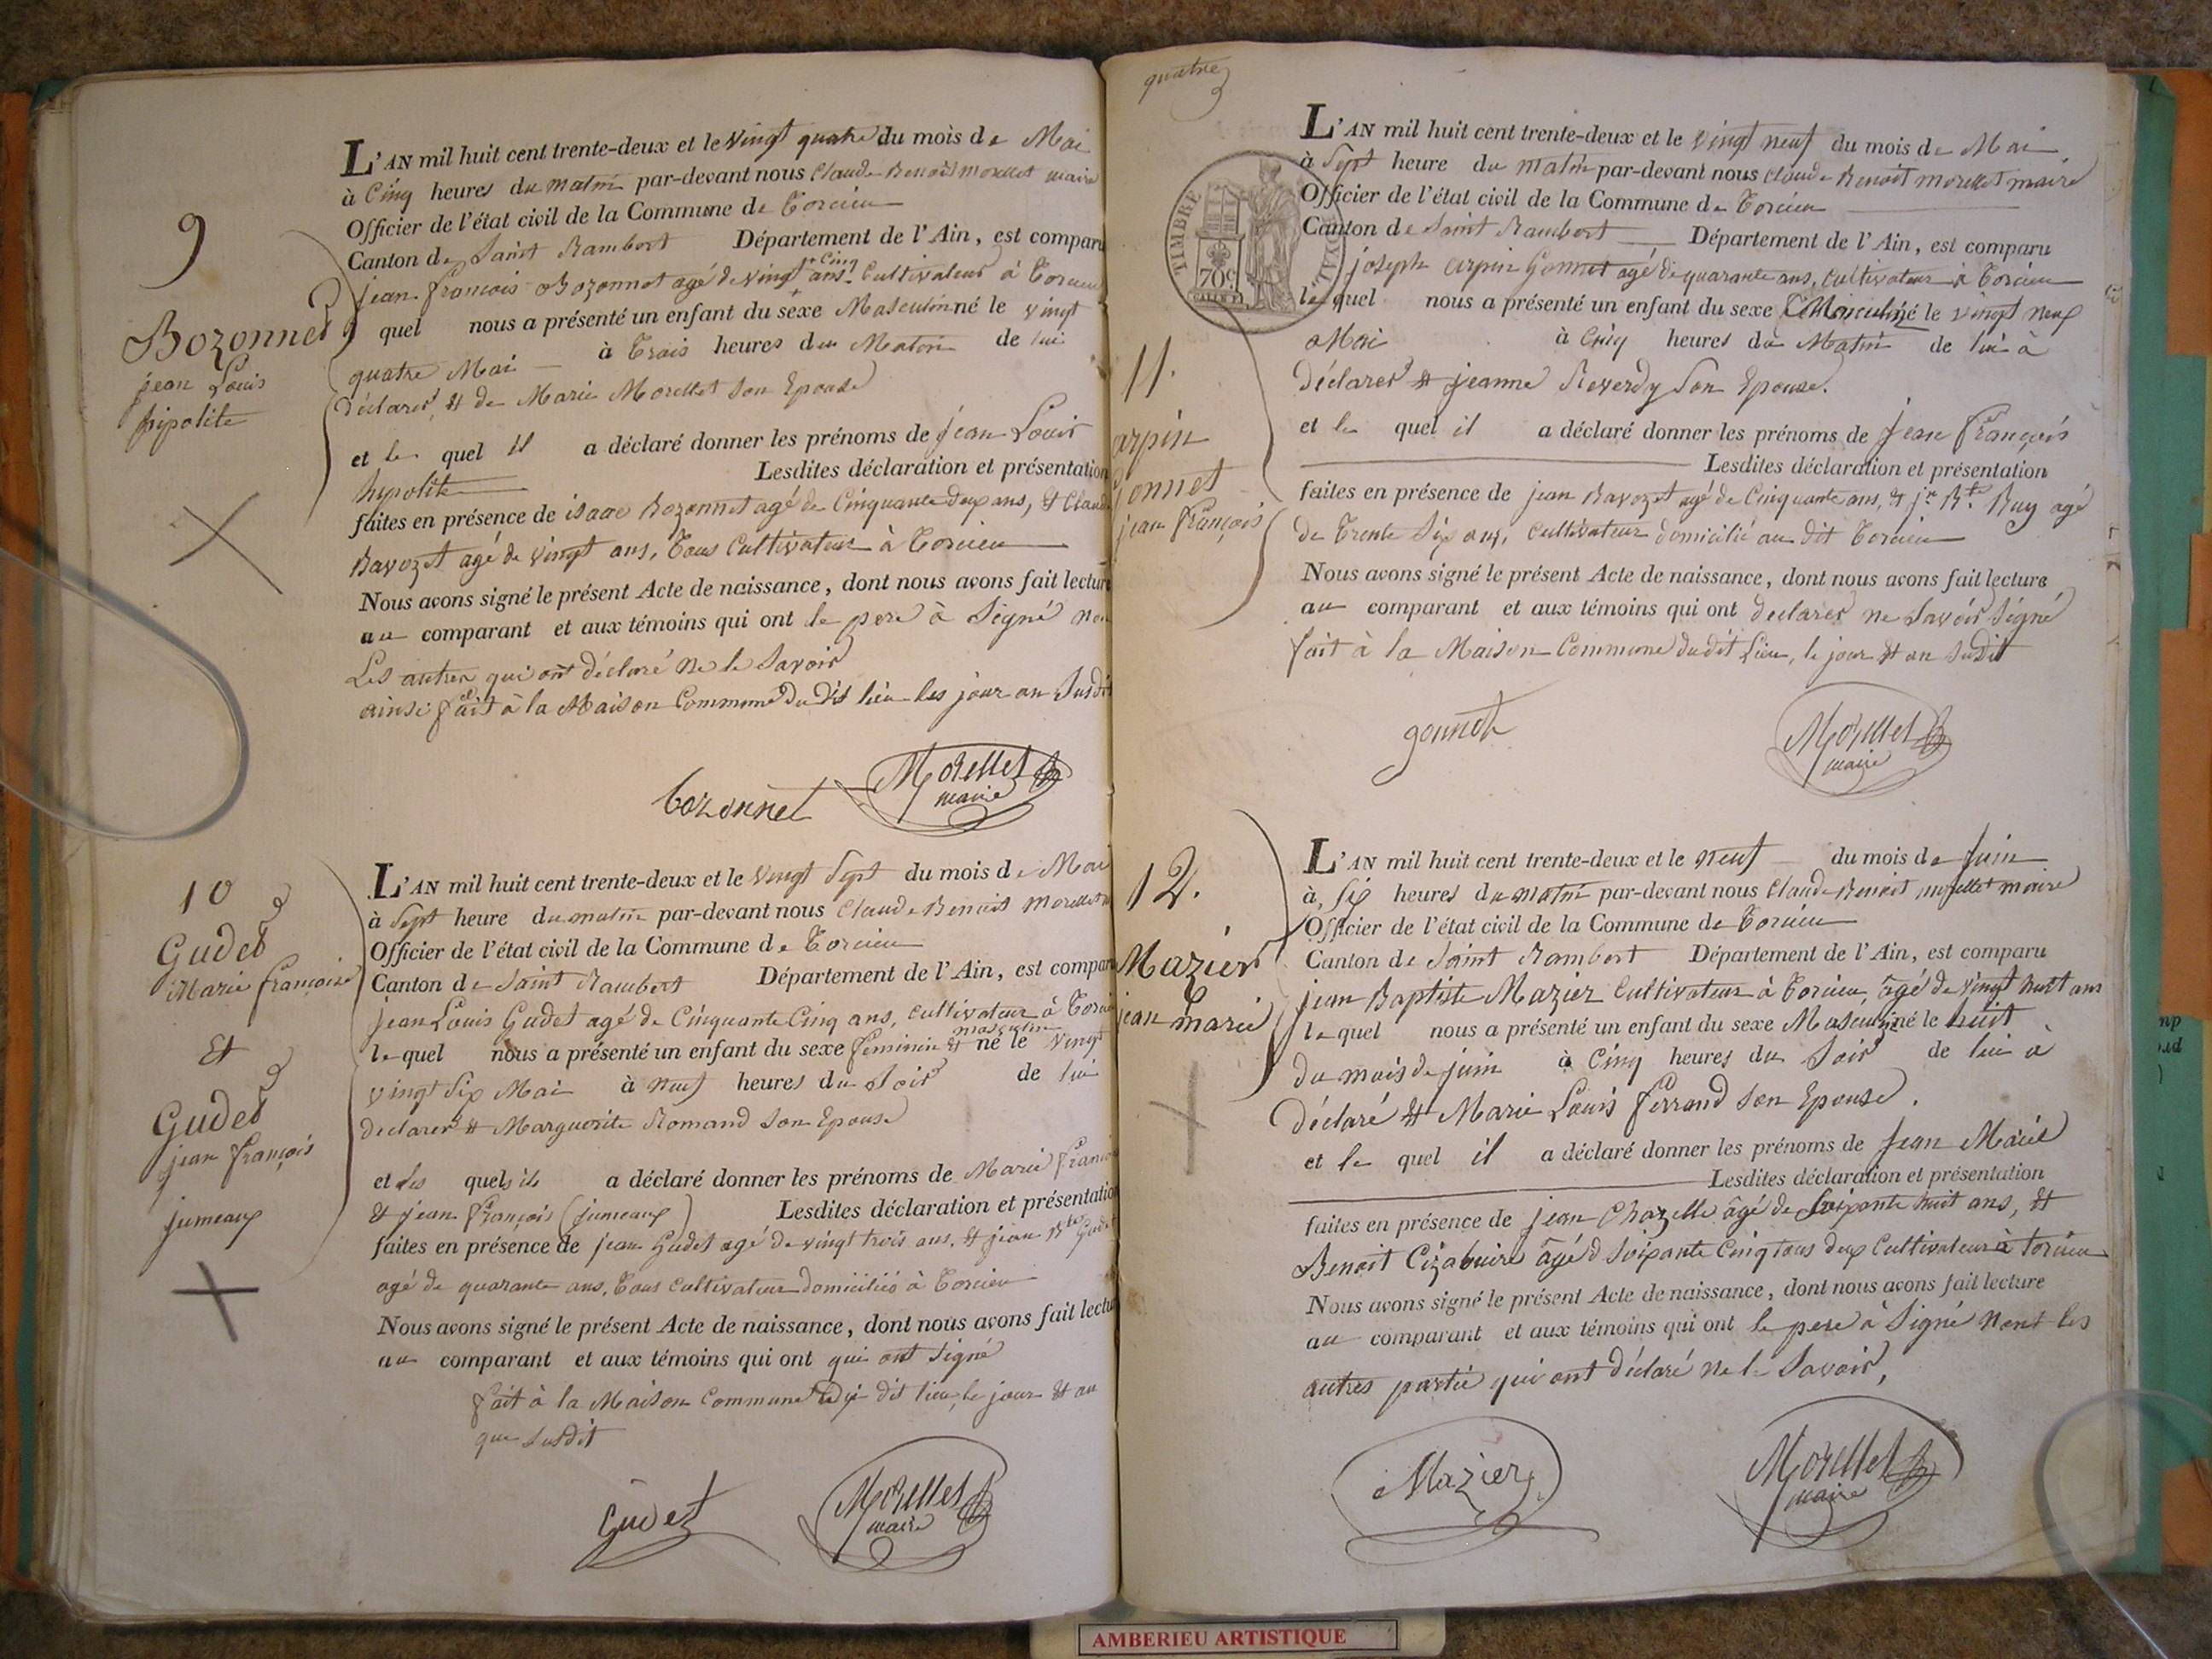 9
Bozonnet
jean Louis
hipolite
L'AN mil huit cent trente-deux et le vingt quatre du mois de Mai
à Cinq heures du matin par-devant nous Claude Benoit morellet maire
Officier de l'état civil de la Commune de Torcieu
Canton de Saint Rambert Département de l'Ain, est comparu
jean-françois Bozonnet agé de vingt cinq ans. Cultivateur à Torcieu
quel nous a présenté un enfant du sexe Masculin né le vingt
quatre Mai à Trois heures du Matin de lui
déclarer, et de Marie Morellet son Epouse
et le quel il a déclaré donner les prénoms de jean Louis
hypolite Lesdites déclaration et présentation
faites en présence de isaac Bozonnet agé de Cinquante deux ans, et Claude
Ravozet agé de vingt ans, Tous Cultivateur à Torcieu
Nous avons signé le présent Acte de naissance, dont nous avons fait lecture
au comparant et aux témoins qui ont le pere à Signé non
Les autres qui ont déclaré ne le Savoir
ainsi fait à la Maison Commune du dit lieu les jour an Susdit
bozonnet Morellet
maire
10
Gudet
Marie françoise
et
Gudet
jean françois
jumeaux
L'AN mil huit cent trente-deux et le vingt Sept du mois de Mai
à Sept heure du matin par-devant nous Claude Benoit Morellet
Officier de l'état civil de la Commune de Torcieu
Canton de Saint Rambert Département de l'Ain, est comparu
jean Louis Gudet agé de Cinquante Cinq ans, cultivateur à Torcieu
masculin
le quel nous a présenté un enfant du sexe feminin et né le vingt
vingt Six Mai à neuf heures du Soir de lui
declarer et Marguerite Romand son Epouse
et les quels il a déclaré donner les prénoms de Marie françoise
et jean françois (jumeaux) Lesdites déclaration et présentation
faites en présence de jean Gudet agé de vingt trois ans. et jean Bte Gudet
agé de quarante ans, Tous cultivateur domiciliés à Torcieu
Nous avons signé le présent Acte de naissance, dont nous avons fait lecture
au comparant et aux témoins qui ont qui ont signé
fait à la Maison Commune du dit lieu, le jour et an
que susdit
Gudet Morellet
maire
quatre
TIMBRE ROYAL
70c
11.
arpin
gonnet
jean françois
L'AN mil huit cent trente-deux et le vingt neuf du mois de Mai
à Sept heure du matin par-devant nous claude Benoit morellet maire
Officier de l'état civil de la Commune de Torcieu
Canton de Saint Rambert Département de l'Ain, est comparu
joseph arpin Gonnet agé de quarante ans, cultivateur à Torcieu
le quel nous a présenté un enfant du sexe Masculin né le vingt neuf
Mai à Cinq heures du Matin de lui à
déclarer et jeanne Reverdy son Epouse.
et le quel il a déclaré donner les prénoms de jean françois
Lesdites déclaration et présentation
faites en présence de jean Ravozet agé de Cinquante ans, et jn Bte Ruy agé
de Trente Six ans, cultivateur domicilié au dit Torcieu
Nous avons signé le présent Acte de naissance, dont nous avons fait lecture
au comparant et aux témoins qui ont declarer ne savoir Signé
fait à la Maison Commune du dit Lieu, le jour et an susdit
gonnet Morellet
maire
12.
Mazier
jean marie
L'AN mil huit cent trente-deux et le neuf du mois de juin
à, six heures du matin par-devant nous Claude Benoit morellet maire
Officier de l'état civil de la Commune de Torcieu
Canton de Saint Rambert Département de l'Ain, est comparu
jean Baptiste Mazier Cultivateur à Torcieu, âgé de vingt huit ans
le quel nous a présenté un enfant du sexe Masculin né le huit
du mois de juin à Cinq heures du Soir de lui à
déclaré et Marie Louis ferrand son Epouse.
et le quel il a déclaré donner les prénoms de jean Marie
Lesdites déclaration et présentation
faites en présence de jean Chazelle âgé de Soixante huit ans, et
Benoit Cizabuire âgé d Soixante Cinq tous deux Cultivateur à torcieu
Nous avons signé le présent Acte de naissance, dont nous avons fait lecture
au comparant et aux témoins qui ont le pere à Signé nont les
autres partie qui ont déclaré ne le Savoir,
Mazier Morellet
maire
AMBERIEU ARTISTIQUE